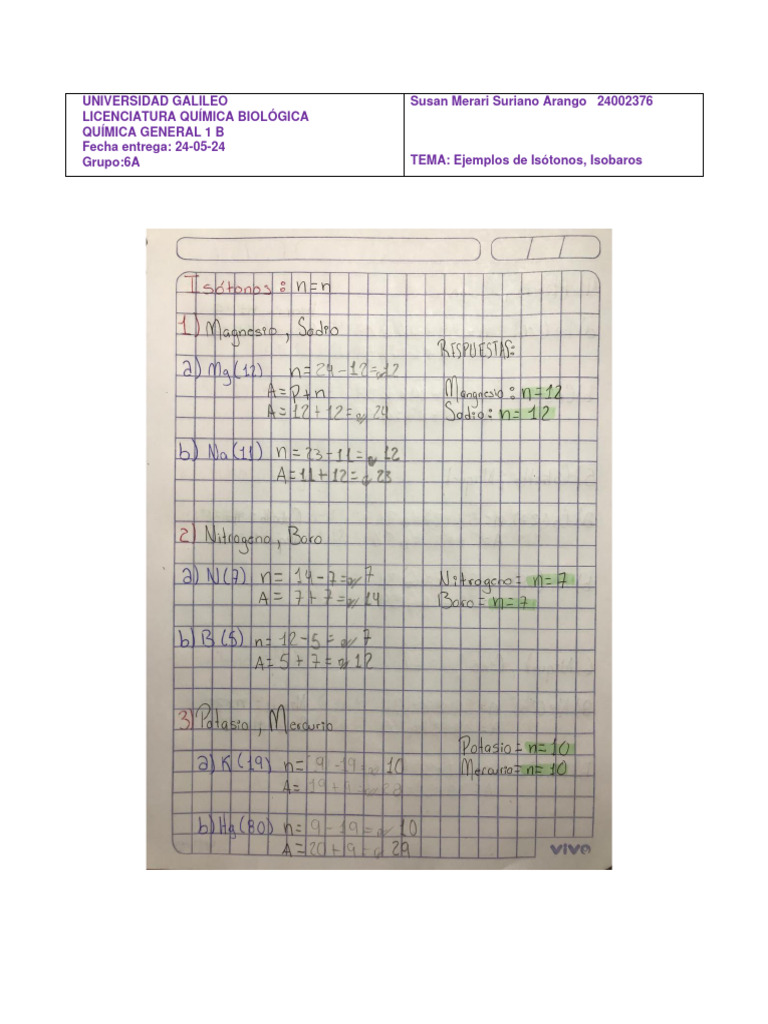 UNIVERSIDAD GALILEO
LICENCIATURA QUÍMICA BIOLÓGICA
QUÍMICA GENERAL 1 B
Fecha entrega: 24-05-24
Grupo:6A
Susan Merari Suriano Arango 24002376
TEMA: Ejemplos de Isótonos, Isobaros
Isótonos: n=n
1) Magnesio, Sodio
RESPUESTAS:
a) Mg(12) n=24-12= 12
A=p+n
A=12+12= 24
Mangnesio: n=12
Sodio: n= 12
b) Na(11) n=23-11= 12
A=11+12= 23
2) Nitrogeno, Boro
a) N(7) n= 14-7= 7
A= 7+7= 14
Nitrogeno= n=7
Boro= n=7
b) B(5) n= 12-5= 7
A= 5+7= 12
3) Potasio, Mercurio
Potasio= n=10
Mercurio= n=10
a) K(19) n= 9-19= 10
A= 19+
b) Hg(80) n= 9-19= 10
A= 20+9= 29
vivo